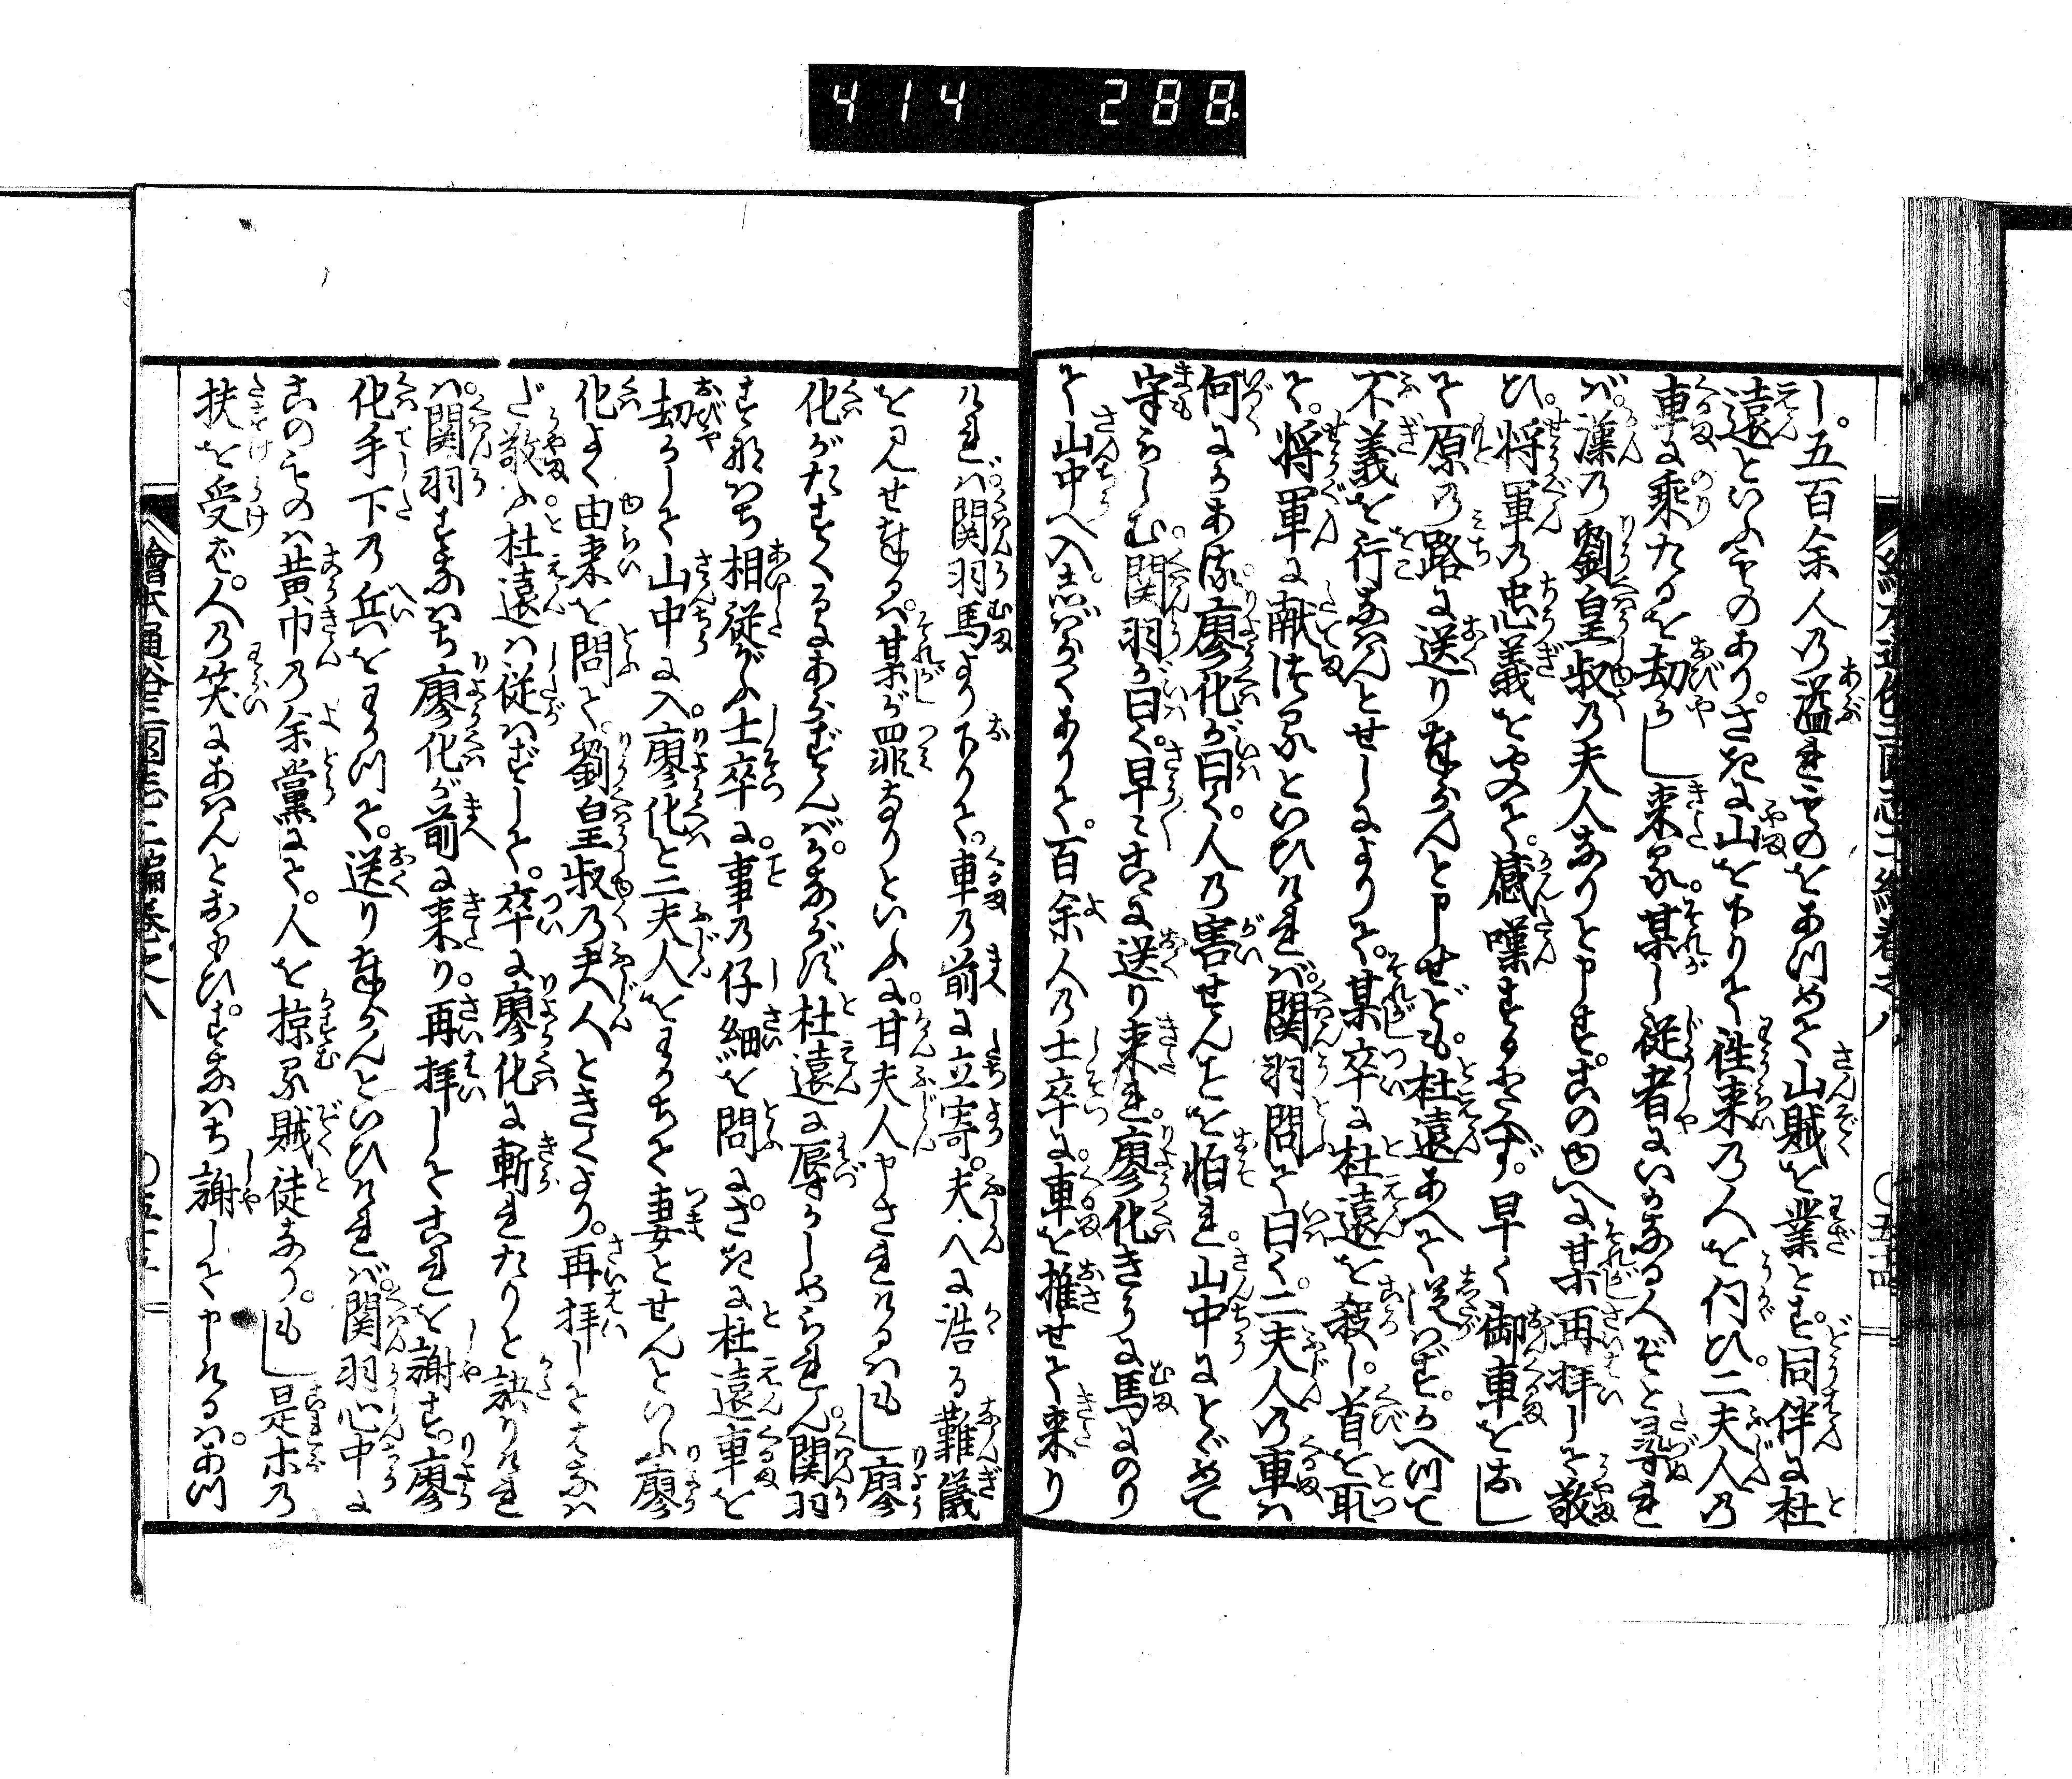 414 288
し。五百余人の溢れものをあつめて山賊を業とす。同伴に杜
遠といふものあり。さきに山を下りて徃来の人を伺ひ。二夫人の
車に乗たるを劫かし来る。某し従者にいかなる人ぞと尋れ
ば。漢の劉皇叔の夫人なりと申す。このゆへに某再拝して敬
ひ。将軍の忠義を聞て。感嘆するにたへず。早く御車をなし
て原の路に送り奉らんと申せども。杜遠あへて従はず。かへつて
不義を行なはんとせしによりて。某卒に杜遠を殺し。首を取
て。将軍に献つるといひければ。関羽問て曰く。二夫人の車は
何にかある。廖化が曰く。人の害せんことを怕れ。山中にとゞめて
守らしむ。関羽が曰く。早々こゝに送り来れ。廖化きうに馬にのり
て山中へ入。しばらくありて。百余人の士卒に。車を推せて来り
ければ。関羽馬より下りて。車の前に立寄。夫人に浩る難儀
を見せ奉るは。某が罪なりといふに。甘夫人申されけるは。もし廖
化がたすくるにあらずんば。ながく杜遠に辱かしめられん。関羽
すなはち相従がふ士卒に。事の仔細を問に。さきに杜遠車を
劫かして山中に入。廖化と二夫人をわかちて妻とせんといふ。廖
化よく由来を問て。劉皇叔の夫人ときくより。再拝してはなは
だ敬ふ。杜遠は従はずして。卒に廖化に斬れたりと訣りけれ
ば。関羽すなはち廖化が前に来り。再拝してこれを謝す。廖
化手下の兵をわかつて。送り奉らんといひければ。関羽心中に
このものは黄巾の余黨にて。人を掠る賊徒なり。もし是ホの
扶を受ば。人の笑にあはんとおもひ。すなはち謝して申けるは。あつ
繪本通俗三國志二編巻之八